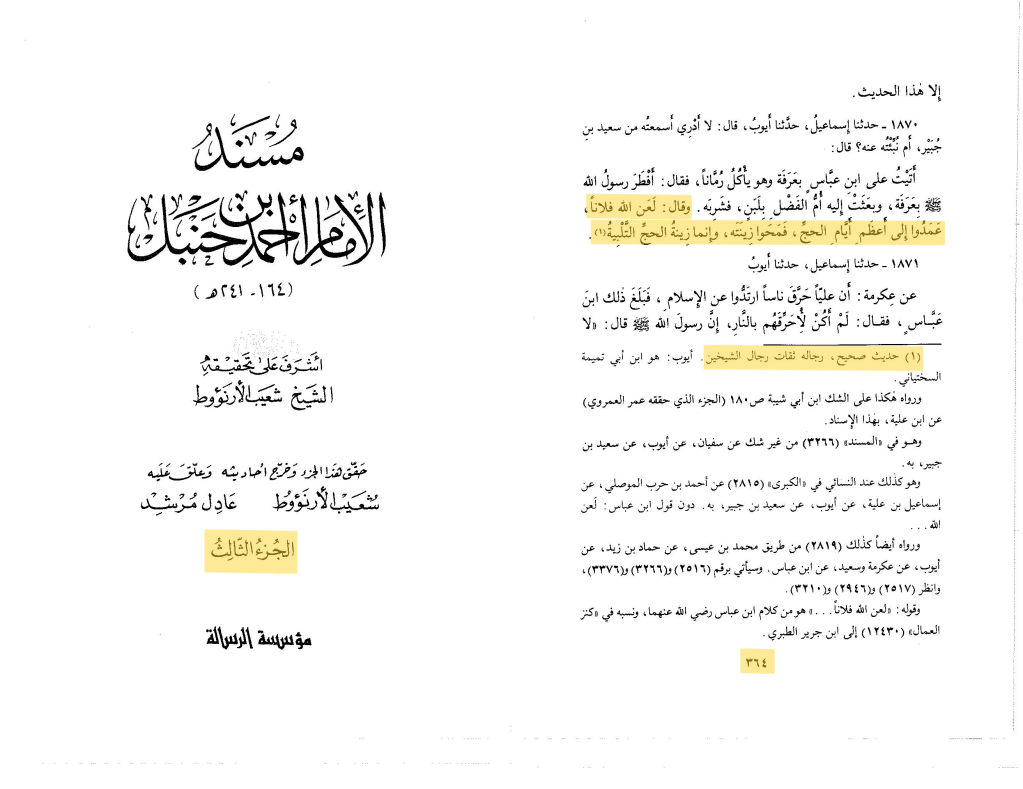 إلا هٰذا الحديث.
١٨٧٠ ـ حدثنا إسماعيلُ، حدَّثنا أيوبُ، قال: لا أَدْرِي أسمعتُه من سعيد بنِ
جُبَيْر، أم نُبِّئْتُه عنه؟ قال:
أَتَيْتُ على ابنِ عبَّاسٍ بعَرَفَة وهو يأْكُلُ رُمَّاناً، فقال: أَفْطَرَ رسولُ الله
ﷺ بِعَرَفَة، وبعَثَتْ إليه أمُّ الفَضْل بِلَبَنٍ، فشَرِبَه. وقال: لَعَن الله فلاناً،
عَمَدُوا إلى أَعظَمِ أَيَّامِ الحجِّ، فمَحَوا زِينَتَه، وإنما زِينةُ الحجِّ التَّلْبِيةُ(١).
١٨٧١ ـ حدثنا إسماعيل، حدثنا أيوبُ
عن عِكرمة: أن عليّاً حَرَّقَ ناساً ارتَدُّوا عن الإسلامِ، فَبَلَغَ ذٰلك ابنَ
عَبَّاسٍ، فقـال: لَمْ أَكُنْ لأُحَرِّقَهُم بالنَّارِ، إنَّ رسولَ الله ﷺ قال: «لا
(١) حديث صحيح، رجاله ثقات رجال الشيخين. أيوب: هو ابن أبي تميمة
السختياني.
ورواه هٰكذا على الشك ابن أبي شيبة ص١٨٠ (الجزء الذي حققه عمر العمروي)
عن ابن علية، بهٰذا الإسناد.
وهـو في «المسند» (٣٢٦٦) من غير شك عن سفيان، عن أيوب، عن سعيد بن
جبير، به.
وهو كذٰلك عند النسائي في «الكبرى» (٢٨١٥) عن أحمد بن حرب الموصلي، عن
إسماعيل بن علية، عن أيوب، عن سعيد بن جبير، به. دون قول ابن عباس: لَعن
الله ...
ورواه أيضاً كذٰلك (٢٨١٩) من طريق محمد بن عيسى، عن حماد بن زيد، عن
أيوب، عن عكرمة وسعيد، عن ابن عباس. وسيأتي برقم (٢٥١٦) و(٣٢٦٦) و(٣٣٧٦)،
وانظر (٢٥١٧) و(٢٩٤٦) و(٣٢١٠).
وقوله: «لعن الله فلاناً...» هو من كلام ابن عباس رضي الله عنهما، ونسبه في «كنز
العمال» (١٢٤٣٠) إلى ابن جرير الطبري.
٣٦٤
مُسْنَدُ
الإمَامِ أحْمَدَ بْنِ حَنْبَل
(١٦٤ - ٢٤١ هـ)
أشْرَفَ عَلىٰ تَحْقِيْقِهِ
الشَيْخ شعَيبُ الأرنَؤوط
حَقّقَ هَذا الجزء وَخَرّجَ أحَاديثه وَعَلّقَ عَلَيه
شُعَيْبُ الأرنَؤُوط عَادِل مُرْشِد
الجُزءُ الثّالِثُ
مؤسسة الرسالة